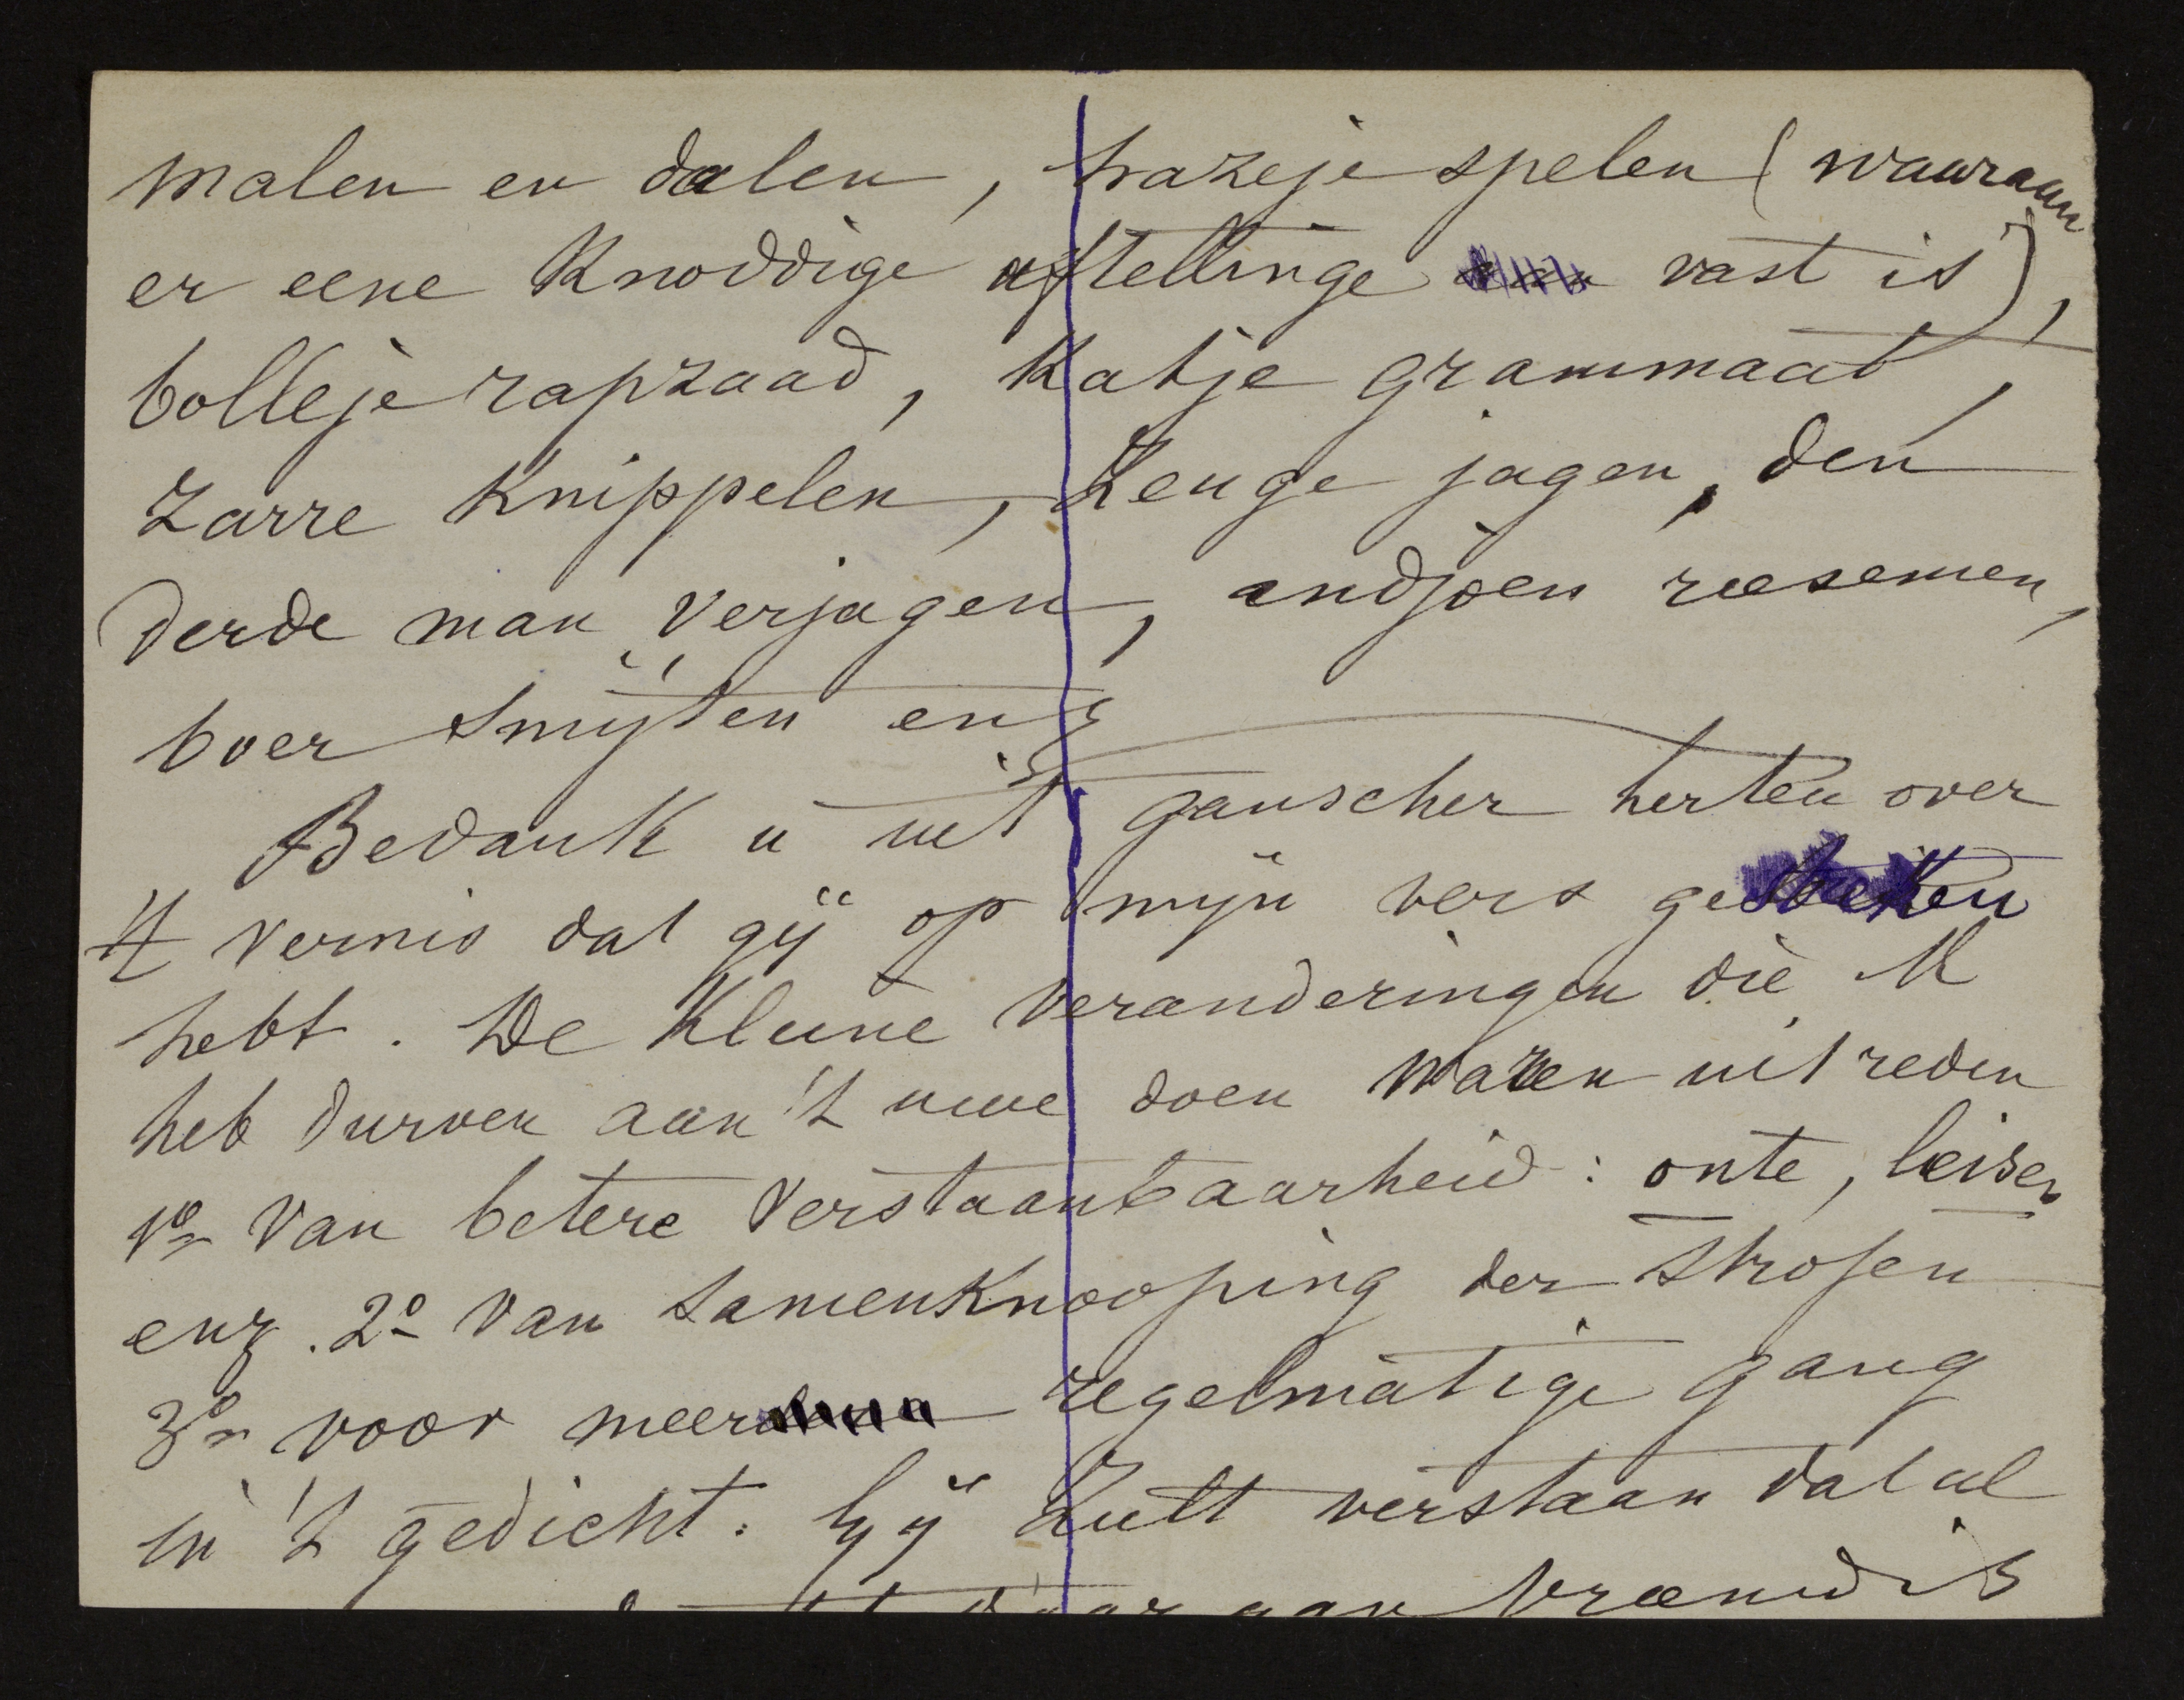 malen en dalen, hazeje spelen (waaraan
er eene knoddige aftellinge vast is),
bolleje rapzaad, katje grammaat,
zarre knippelen, Zeuge jagen, den
derde man verjagen, andjoen reesemen,
boer smijten enz
Bedank u uit ganscher herten over
't vernis dat gij op mijn vers gestreken
hebt. De kleine veranderingen die 'k
heb durven aan 't uwe doen waren uit reden
1º van betere verstaanbaarheid: onte, leisen
enz. 2º van samenknooping der strofen
3º voor meer regelmatige gang
in 't gedicht. Gij zult verstaan dat al
vræmd is